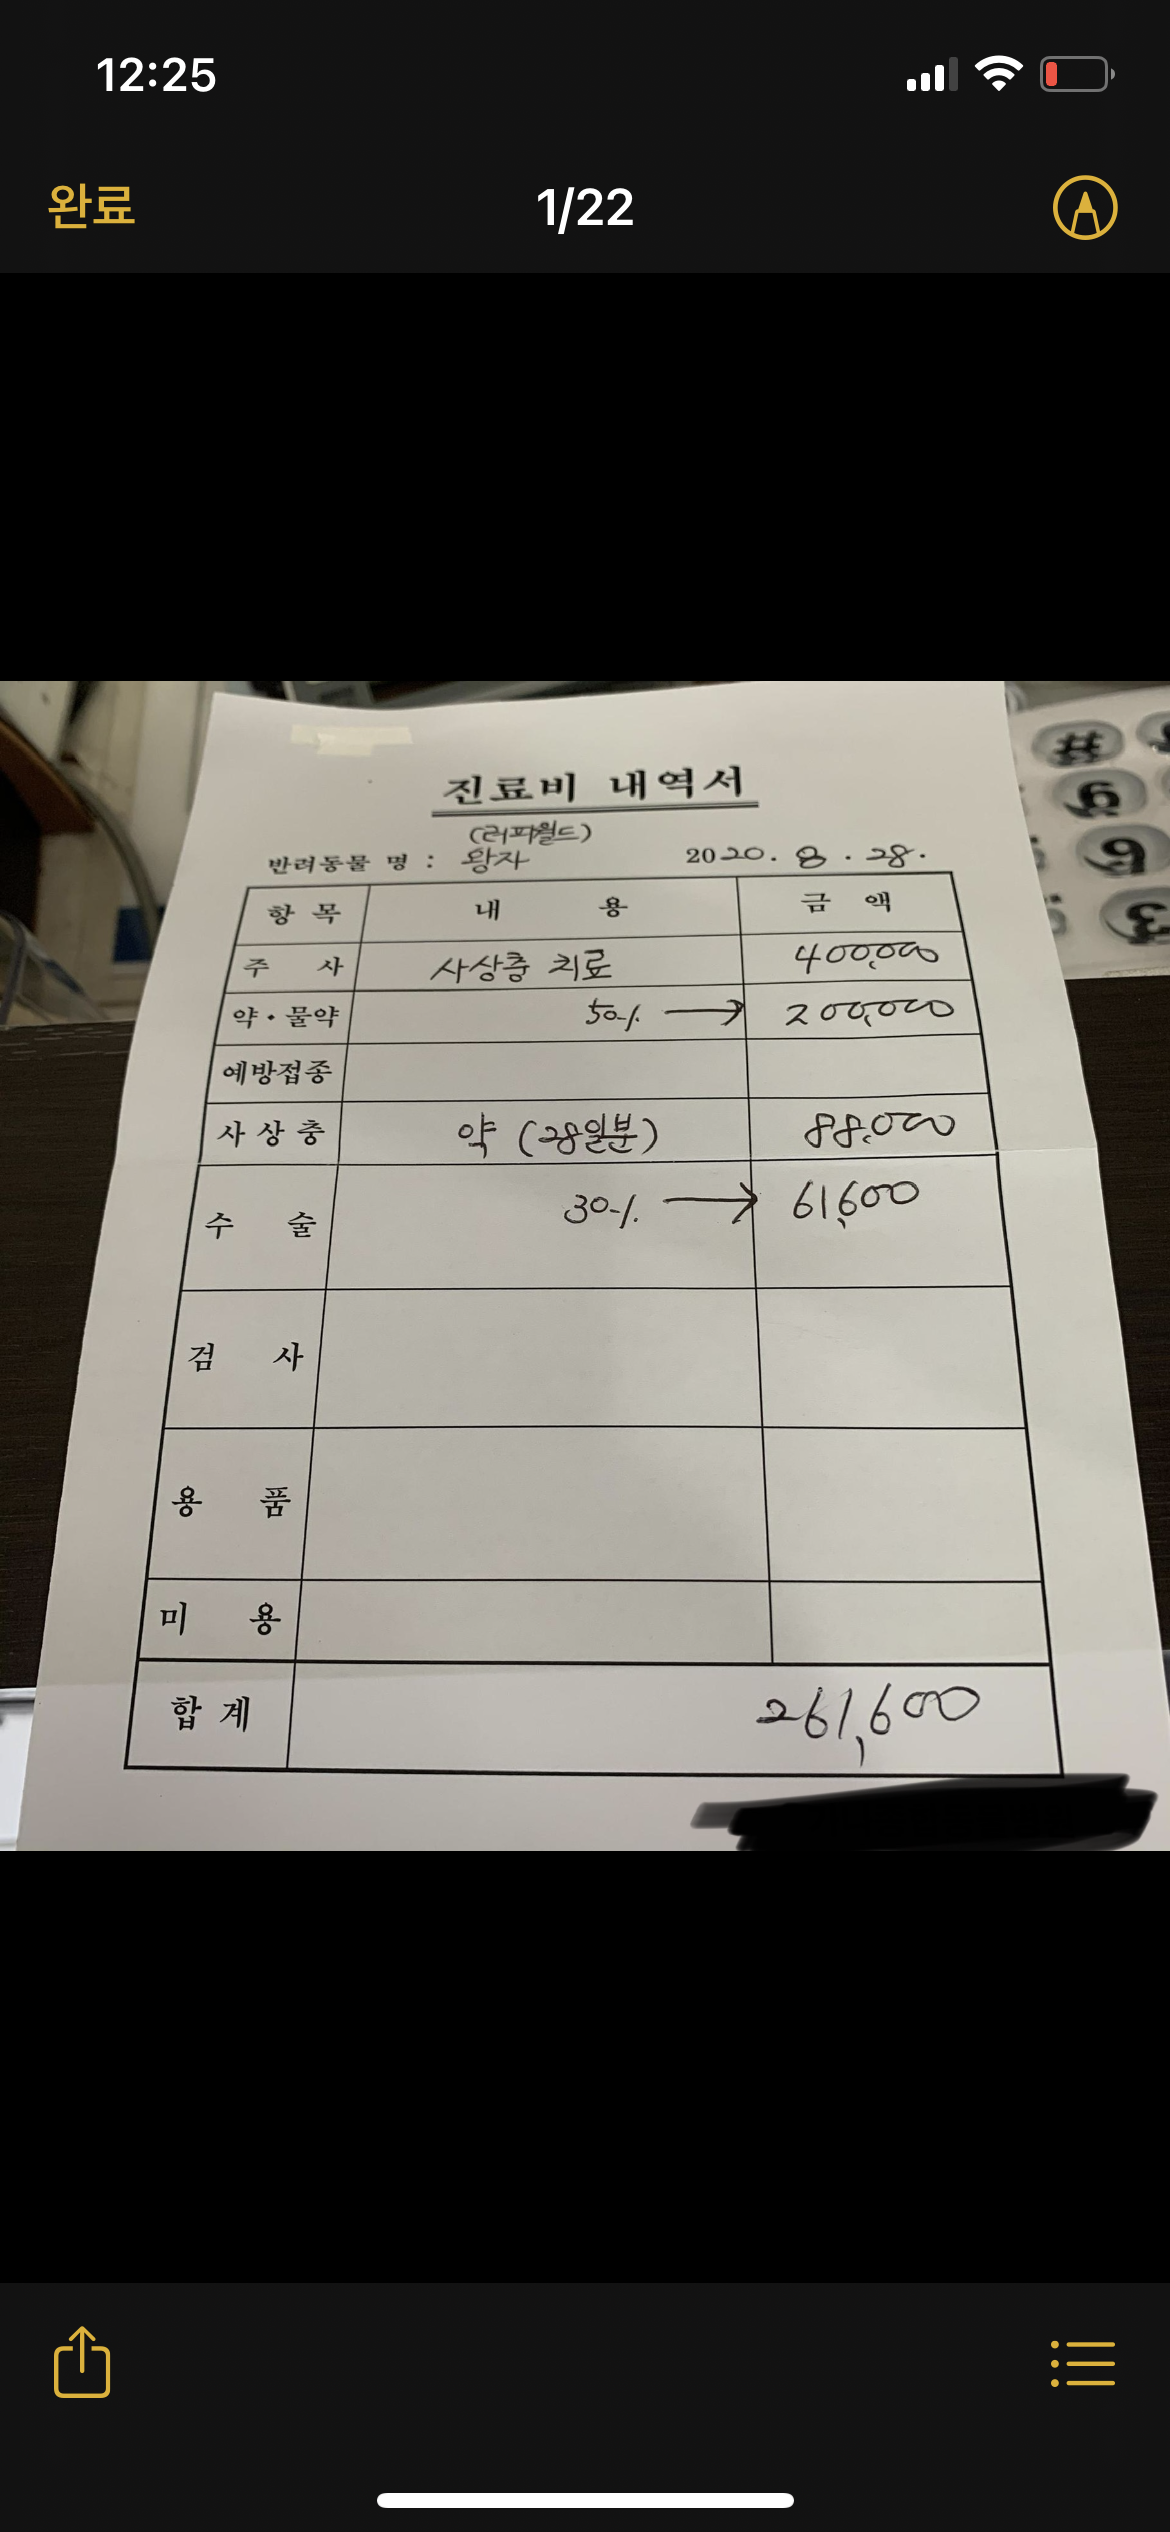 12:25
완료
1/22
진료비 내역서
(러피월드)
반려동물 명 : 왕자 2020. 8. 28.
항 목 내 용 금 액
주 사 사상충 치료 400,000
약·물약 50% → 200,000
예방접종
사상충 약 (28일분) 88,000
수 술 30% → 61,600
검 사
용 품
미 용
합 계 261,600
#
9
6
3